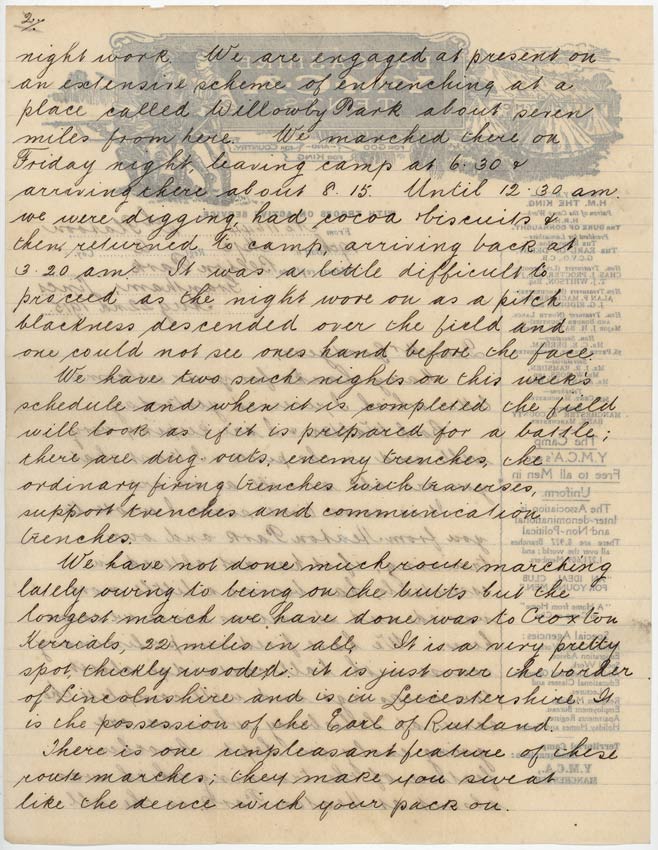 2/.
night work. We are engaged at present on
an extensive scheme of entrenching at a
place called Willowby Park about seven
miles from here. We marched there on
Friday night leaving camp at 6.30 &
arriving there about 8.15. Until 12.30 am.
we were digging, had cocoa biscuits &
then returned to camp, arriving back at
3.20 am. It was a little difficult to
proceed as the night wore on as a pitch
blackness descended over the field and
one could not see ones hand before the face.
We have two such nights on this week's
schedule and when it is completed the field
will look as if it is prepared for a battle;
there are dug-outs, enemy trenches, the
ordinary firing trenches with traverses,
support trenches and communication
trenches.
We have not done much route marching
lately owing to being on the butts but the
longest march we have done was to Croxton
Kerrials, 22 miles in all. It is a very pretty
spot, thickly wooded: it is just over the border
of Lincolnshire and is in Leicestershire. It
is the possession of the Earl of Rutland
There is one unpleasant feature of these
route marches; they make you sweat
like the deuce with your pack on.